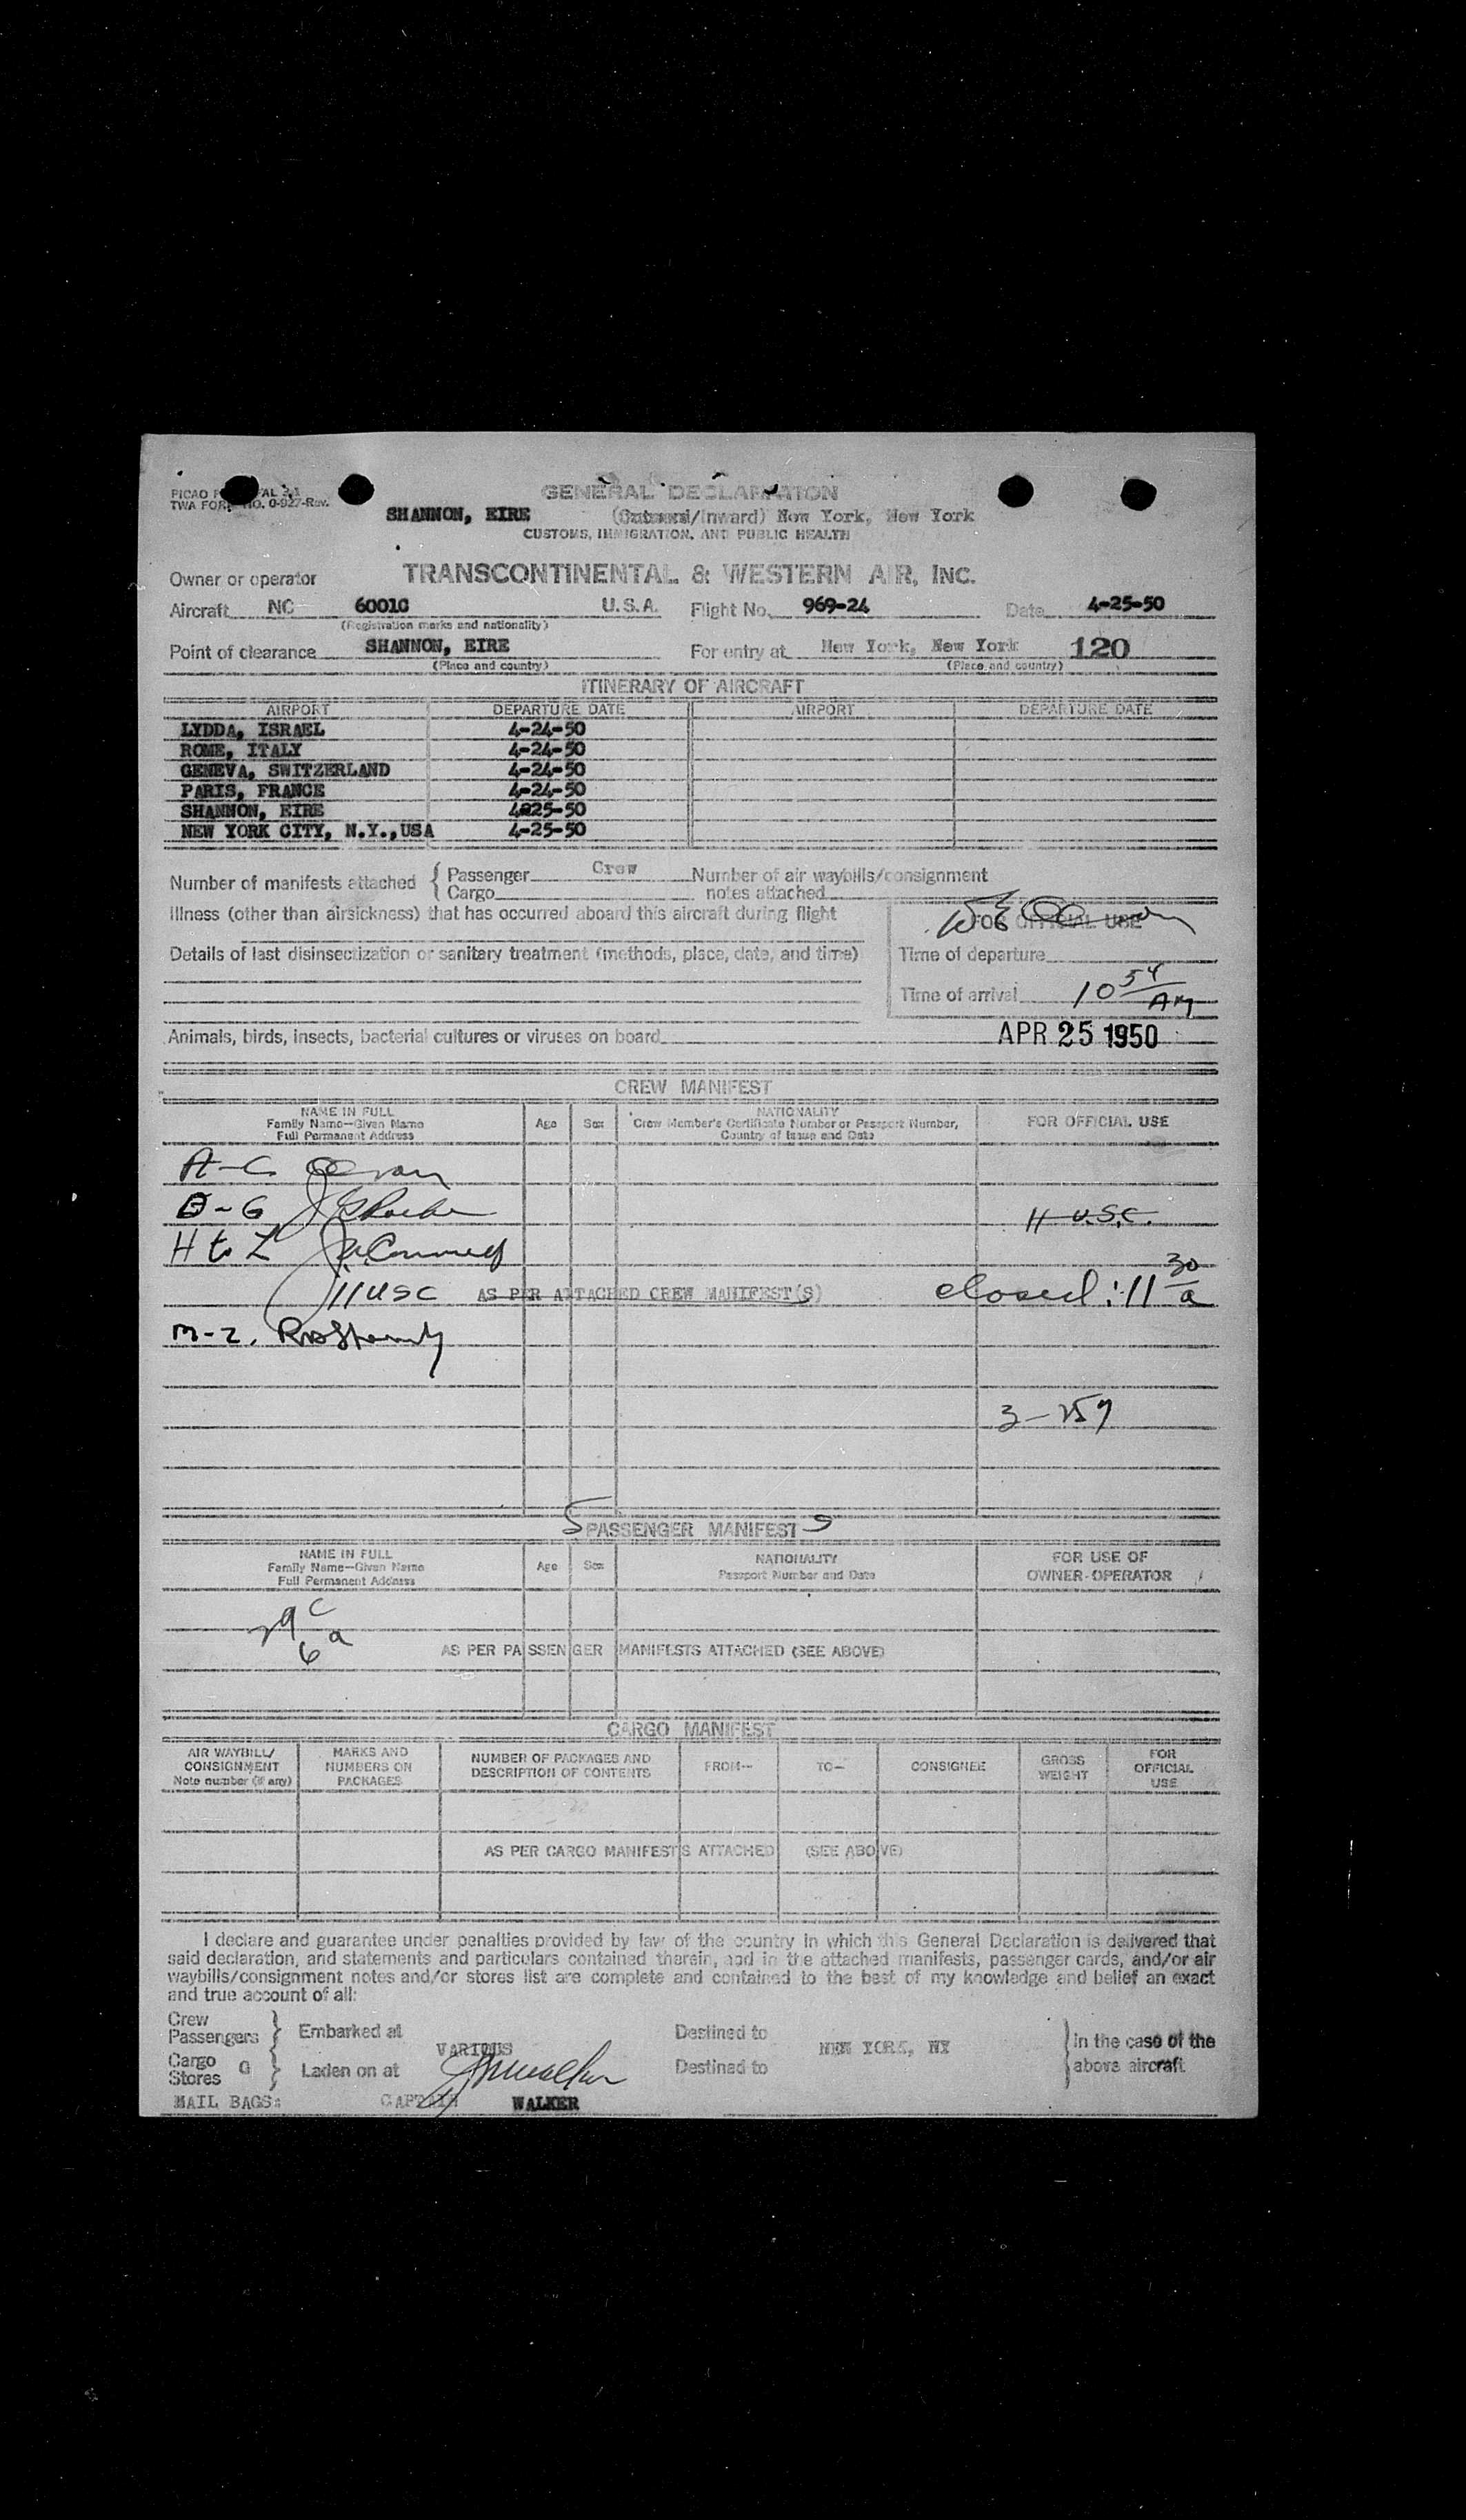 GENERAL DECLARATION
TWA FORM NO. 0-927-Rev.
SHANNON, EIRE (Outward/Inward) New York, New York
CUSTOMS, IMMIGRATION, AND PUBLIC HEALTH
Owner or operator TRANSCONTINENTAL & WESTERN AIR, INC.
Aircraft NC 6001C U.S.A. Flight No. 969-24 Date 4-25-50
(Registration marks and nationality)
Point of clearance SHANNON, EIRE For entry at New York, New York 120
(Place and country) (Place and country)
ITINERARY OF AIRCRAFT
AIRPORT DEPARTURE DATE AIRPORT DEPARTURE DATE
LYDDA, ISRAEL 4-24-50
ROME, ITALY 4-24-50
GENEVA, SWITZERLAND 4-24-50
PARIS, FRANCE 4-24-50
SHANNON, EIRE 4-25-50
NEW YORK CITY, N.Y.,USA 4-25-50
Number of manifests attached { Passenger Crew Number of air waybills/consignment
{ Cargo notes attached
Illness (other than airsickness) that has occurred aboard this aircraft during flight
FOR OFFICIAL USE
Details of last disinsectization or sanitary treatment (methods, place, date, and time)
Time of departure
Time of arrival 10 54 AM
Animals, birds, insects, bacterial cultures or viruses on board APR 25 1950
CREW MANIFEST
NAME IN FULL Age Sex NATIONALITY FOR OFFICIAL USE
Family Name—Given Name Crew Member's Certificate Number or Passport Number,
Full Permanent Address Country of Issue and Date
A-C
D-G
11 U.S.C.
H to L
11 USC AS PER ATTACHED CREW MANIFEST(S) closed: 11 30 a
M-Z.
3-257
PASSENGER MANIFEST S
NAME IN FULL Age Sex NATIONALITY FOR USE OF
Family Name—Given Name Passport Number and Date OWNER-OPERATOR
Full Permanent Address
29 c
6 a
AS PER PASSENGER MANIFESTS ATTACHED (SEE ABOVE)
CARGO MANIFEST
AIR WAYBILL/ MARKS AND NUMBER OF PACKAGES AND FROM— TO— CONSIGNEE GROSS FOR
CONSIGNMENT NUMBERS ON DESCRIPTION OF CONTENTS WEIGHT OFFICIAL
Note number (if any) PACKAGES USE
AS PER CARGO MANIFESTS ATTACHED (SEE ABOVE)
I declare and guarantee under penalties provided by law of the country in which this General Declaration is delivered that
said declaration, and statements and particulars contained therein, and in the attached manifests, passenger cards, and/or air
waybills/consignment notes and/or stores list are complete and contained to the best of my knowledge and belief an exact
and true account of all:
Crew
Passengers } Embarked at VARIOUS Destined to NEW YORK, NY } in the case of the
Cargo 0
Stores } Laden on at Destined to above aircraft
MAIL BAGS: CAPTAIN WALKER